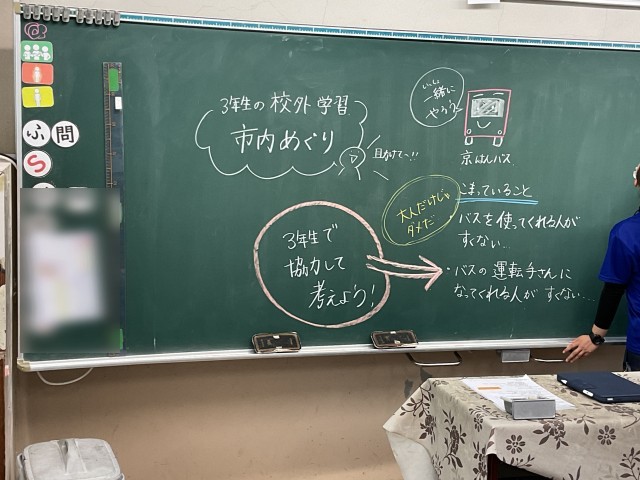 ふ
問
S
3年生の校外学習
市内めぐり
出かけて〜!!
一緒に
やろう
京はんバス
大人だけじゃ
ダメだ
こまっていること
・バスを使ってくれる人が
すくない…
・バスの運転手さんに
なってくれる人が すくない…
3年生で
協力して
考えよう!